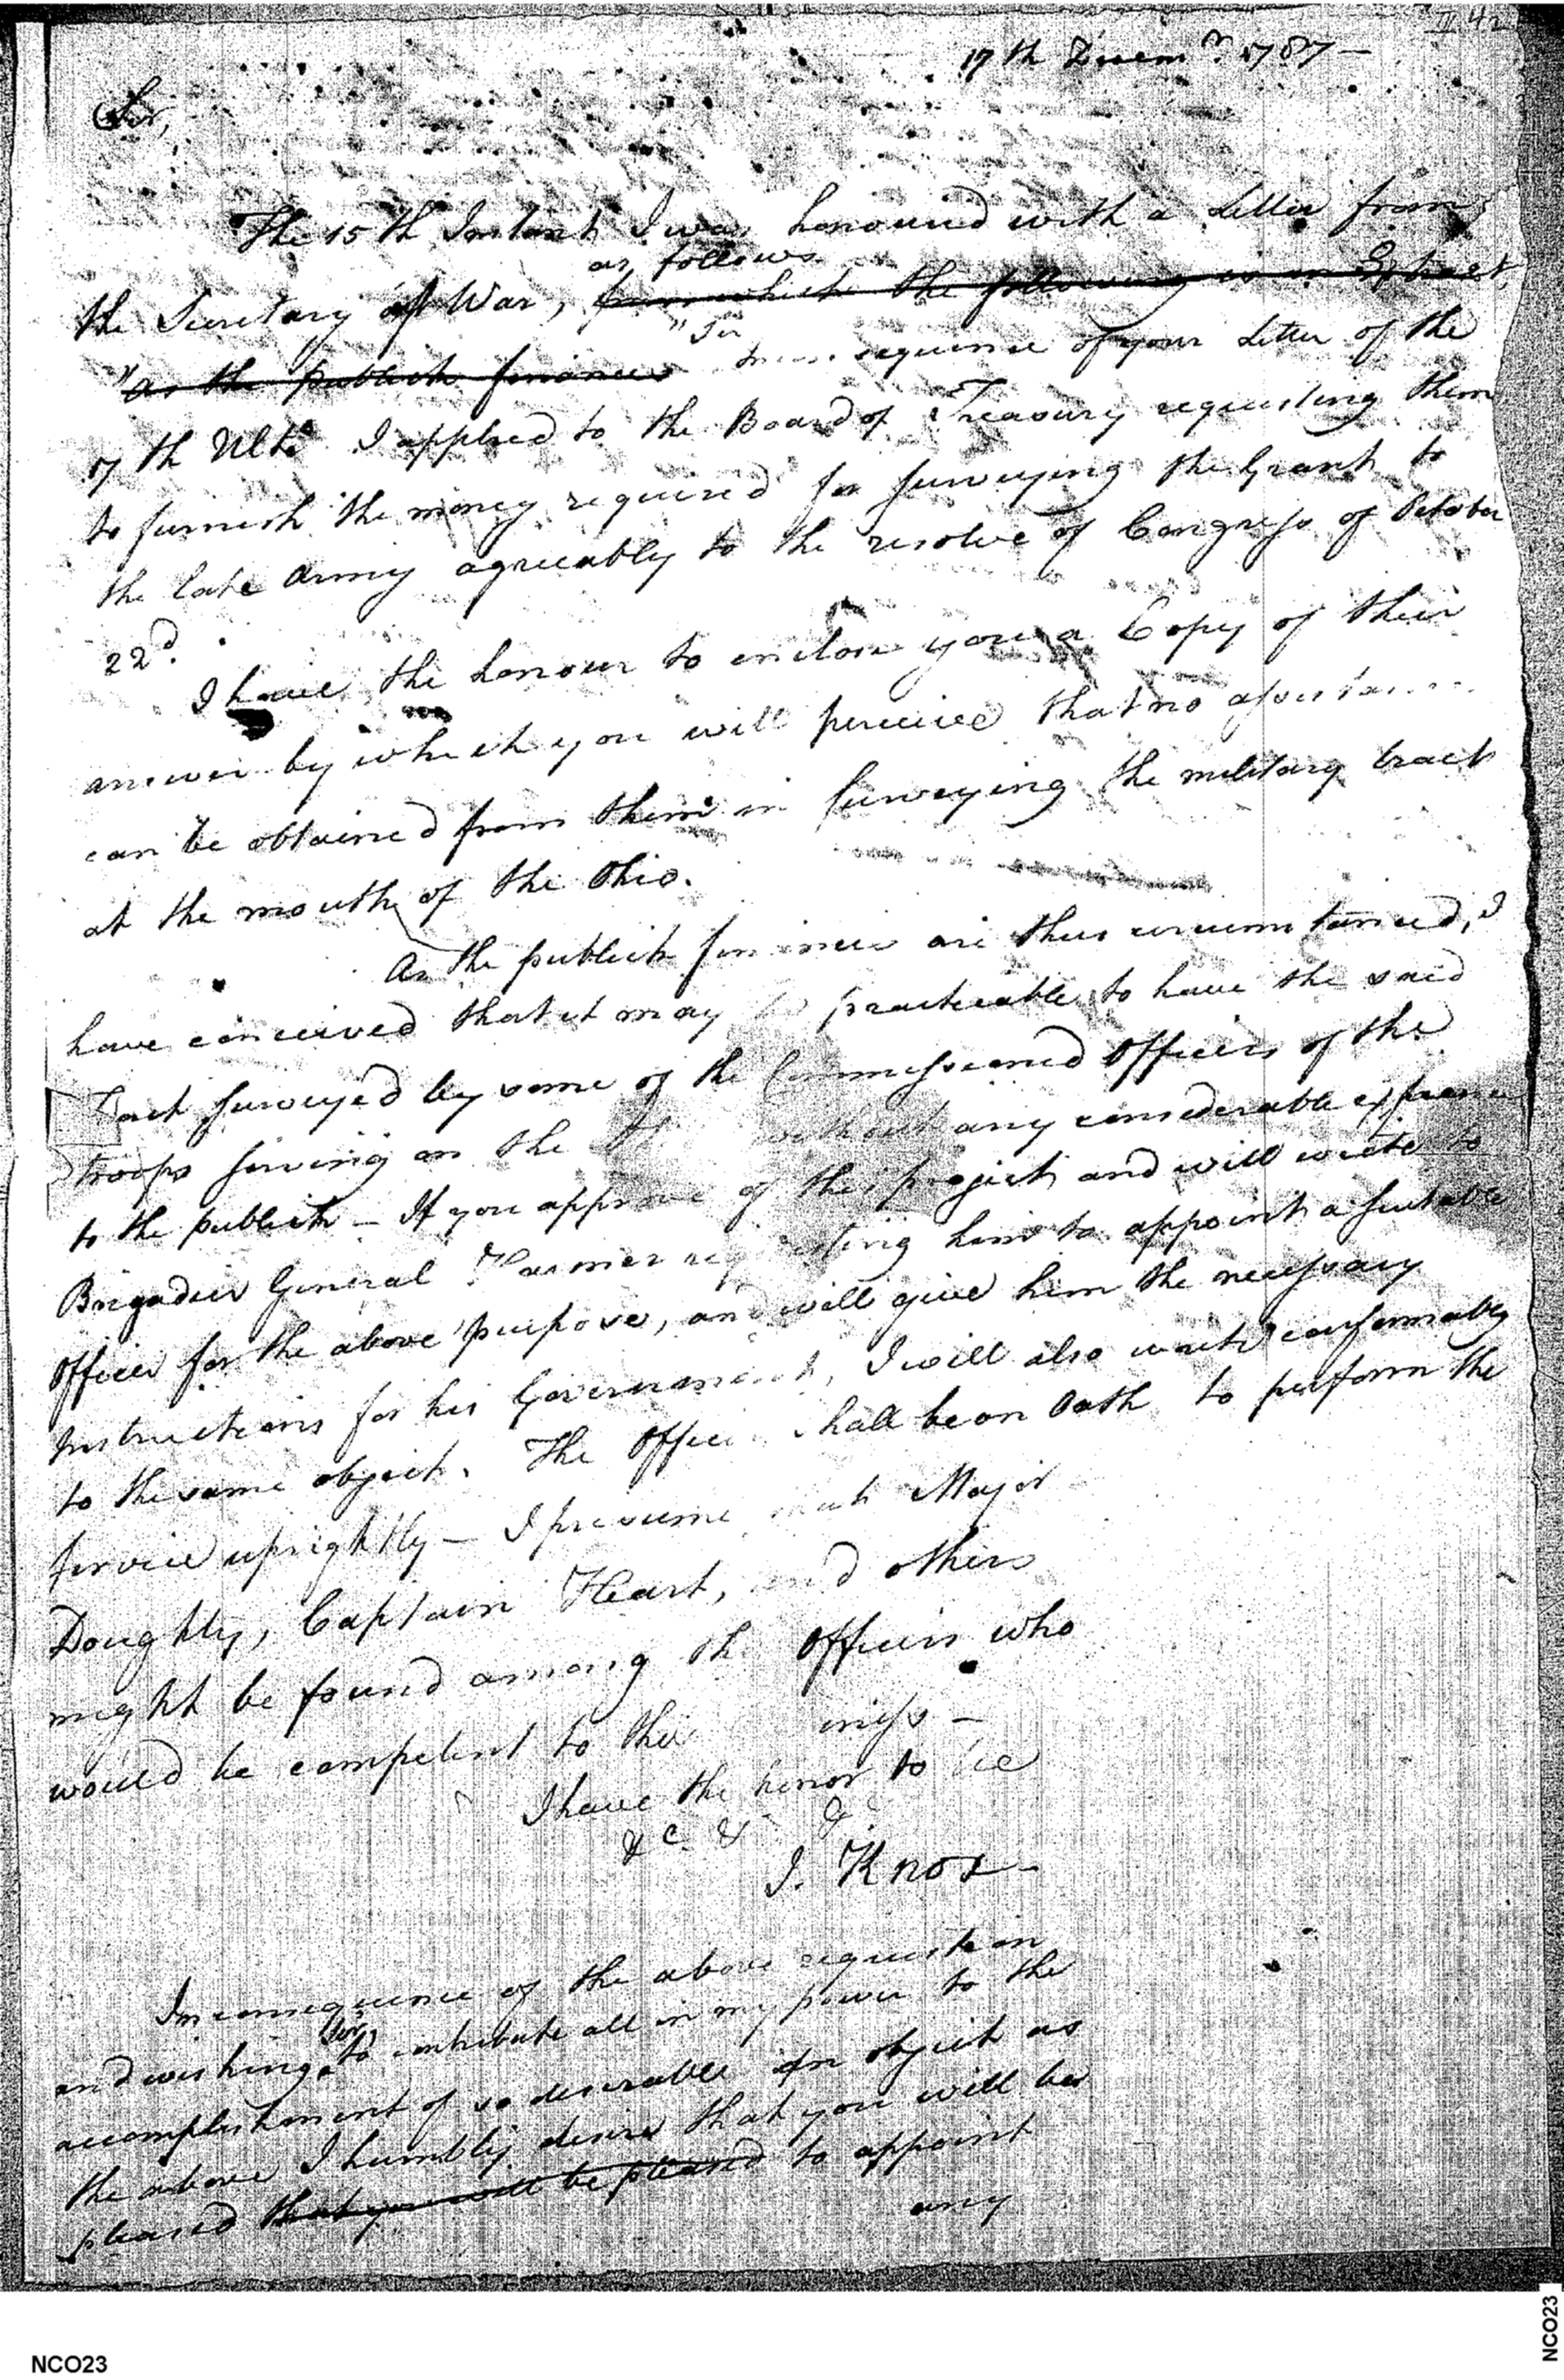 II 42
17th Decemr. 1787—
Sir,
The 15th Instant I was honoured with a Letter from
as follows
the Secretary of War, from which the following is an Extract,
"Sir
"as the publick finances In consequence of your Letter of the
7th Ulto. I applied to the Board of Treasury requesting them
to furnish the money required for surveying the Grant to
the late Army agreeably to the resolve of Congress of October
22d.
I have the honour to enclose you a Copy of their
answer by which you will perceive that no assistance
can be obtained from them in surveying the military tract
at the mouth of the Ohio.
As the publick finances are thus circumstanced, I
have conceived that it may be practicable to have the said
Tract surveyed by some of the Commissioned Officers of the
troops serving on the without any considerable expence
to the publick — If you approve of this project and will write to
Brigadier General Harmer requesting him to appoint a suitable
Officer for the above purpose, and will give him the necessary
Instructions for his Government, I will also write conformably
to the same object. The Officer shall be on Oath to perform the
service uprightly — I presume that Major
Doughty, Captain Heart, and others
might be found among the Officers who
would be competent to this
I have the honor to be
&c &c &c
J. Knox—
In consequence of the above request
Sir,
and wishing to contribute all in my power to the
accomplishment of so desirable an object as
the above I humbly desire that you will be
pleased that you will be pleased to appoint
any
NCO23
NCO23